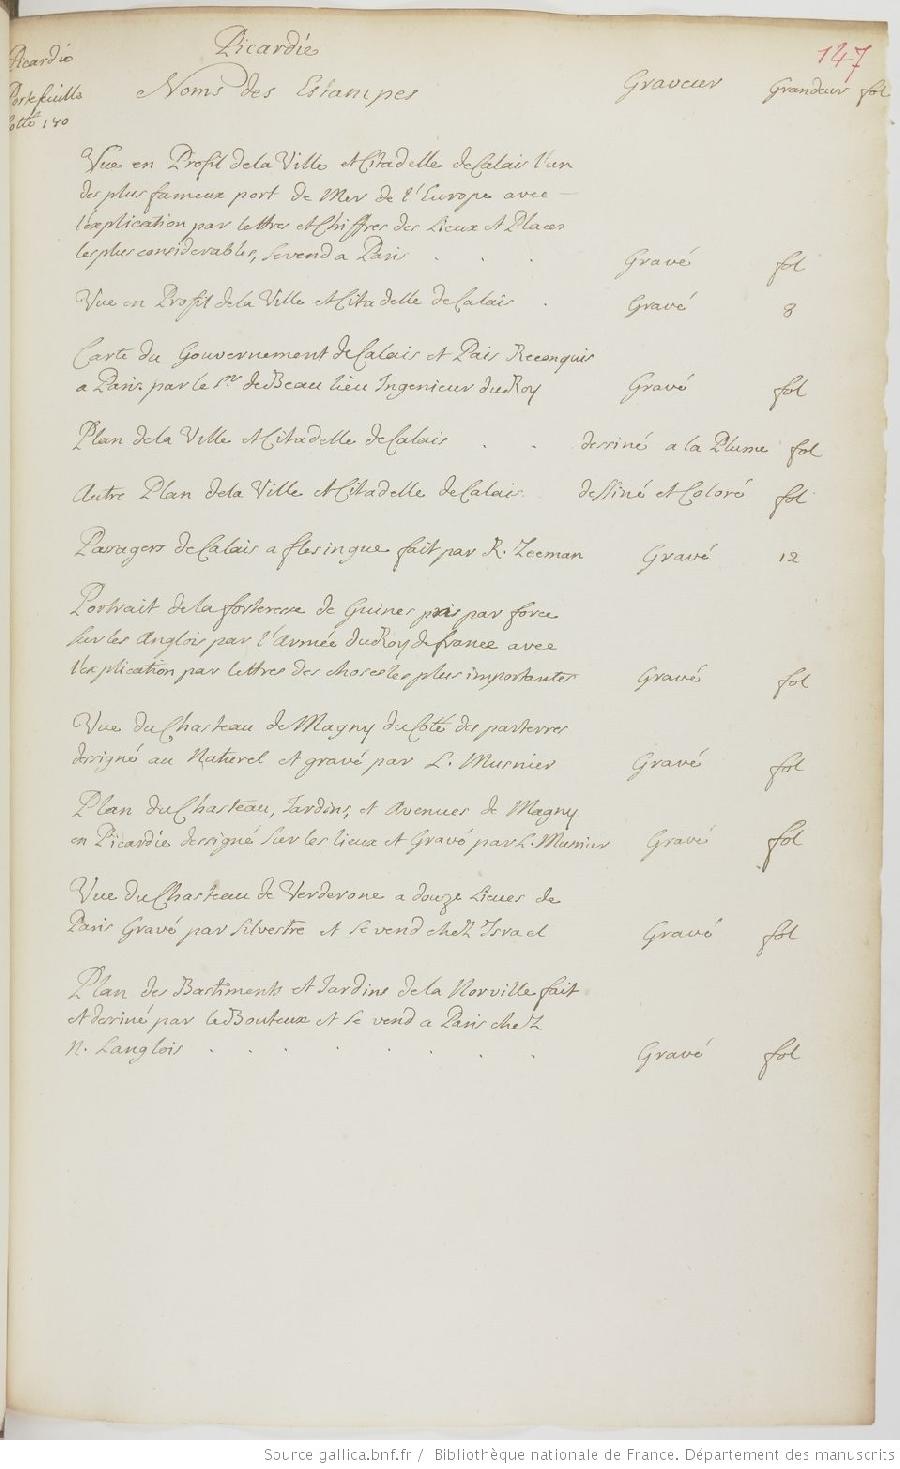 Picardie
147
Picardie
Portefeuille
Cotté 180
Noms des Estampes Graveur Grandeur fol
Vue en Profil dela Ville et Citadelle de Calais l'un
des plus fameux port de Mer de l'Europe avec
l'explication par lettres et Chiffres des Lieux et Places
les plus considerables, se vend a Paris . . . Gravé fol
Vue en Profil dela Ville et Citadelle de Calais . Gravé 8
Carte du Gouvernement de Calais et Pais Reconquis
a Paris par le Sr. de Beaulieu Ingenieur du Roy Gravé fol
Plan dela Ville et Citadelle de Calais . . dessiné a la Plume fol
Autre Plan dela Ville et Citadelle de Calais dessiné et Coloré fol
Passagers de Calais a flesingue fait par R. Zeeman Gravé 12
Portrait de la forteresse de Guines pris par force
sur les Anglois par l'Armée du Roy de france avec
l'explication par lettres des choses les plus importantes Gravé fol
Vue du Chasteau de Magny du Coté des parterres
designé au Naturel et gravé par L. Musnier Gravé fol
Plan du Chasteau, Jardins, et Avenues de Magny
en Picardie dessigné sur les lieux et Gravé par L. Musnier Gravé fol
Vue du Chasteau de Verderone a douze Lieues de
Paris Gravé par Silvestre et se vend chez Israel Gravé fol
Plan des Bastiments et Jardins de la Norville fait
et dessiné par le Bouteux et se vend a Paris chez
N. Langlois . . . . . . . . Gravé fol
Source gallica.bnf.fr / Bibliothèque nationale de France. Département des manuscrits